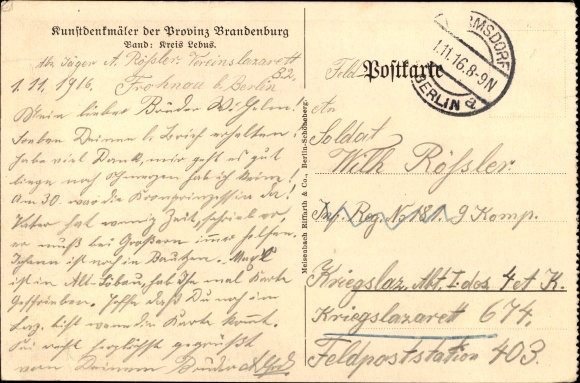 Kunstdenkmäler der Provinz Brandenburg
Band: Kreis Lebus.
Abs. Jäger A. Rößler, Vereinslazarett
1.11.1916. Frohnau b. Berlin
Mein lieber Bruder Wilhelm.
Soeben Deinen l. Brief erhalten,
habe viel Dank, mir geht es gut
liege noch, Schmerzen hab ich keine!
Am 30. war die Kronprinzessin da!
Vater hat wenig Zeit, schrieb er,
er muß bei Großern immer helfen.
ist noch in Bautzen.
ist in Alt-Löbau, hab Ihr mal Karte
geschrieben. Hoffe daß Du noch im
Laz. bist wenn die Karte kommt.
Sei recht herzlichst gegrüßt
von Deinem Bruder Alfred
Meisenbach Riffarth & Co., Berlin-Schöneberg.
Feld Postkarte
RMSDORF
1.11.16.8-9N
BERLIN
An
Soldat
Wilh. Rößler.
Inf. Reg. No 181. 9 Komp.
Kriegslaz. Abt. I. des 4 et K.
Kriegslazarett 674.
Feldpoststation 403.